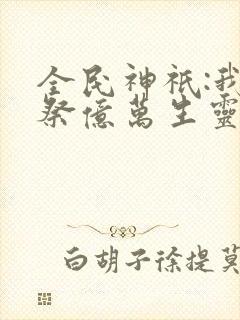 全民神祇:我
祭億萬生靈
白胡子徐提莫